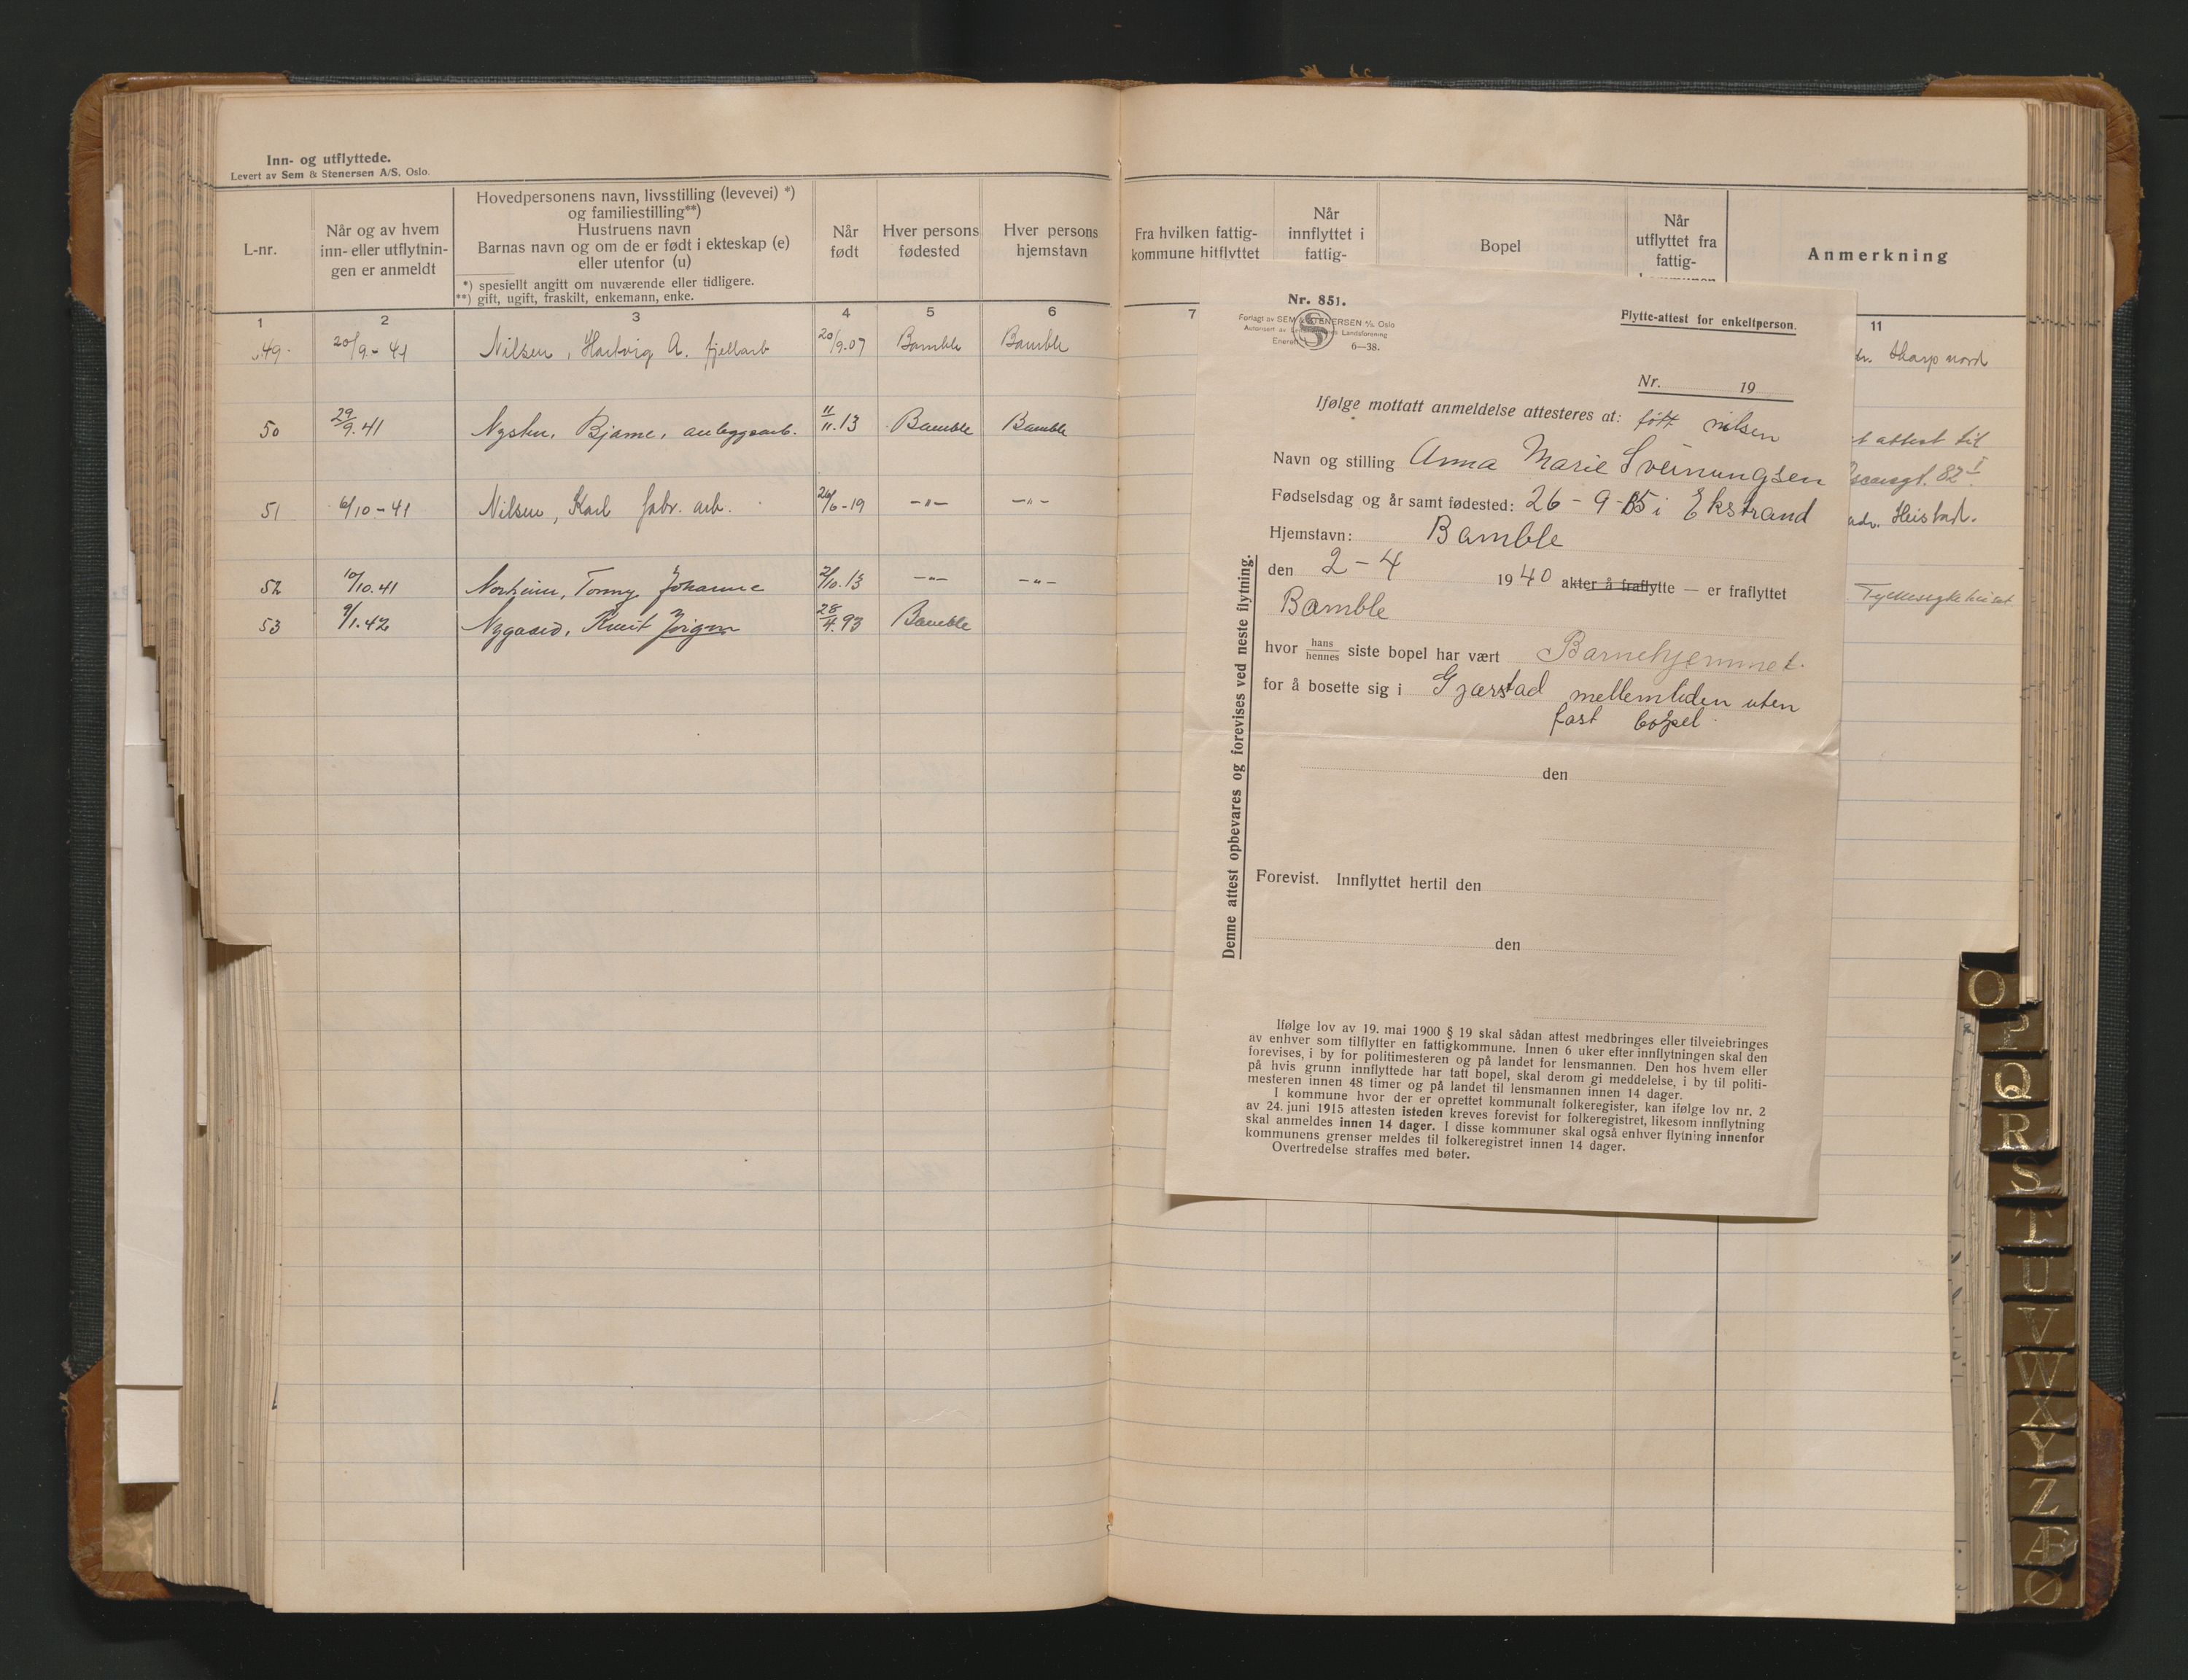 Inn- og utflyttede.
Levert av Sem & Stenersen A/S, Oslo.
L-nr.
Når og av hvem
inn- eller utflytnin-
gen er anmeldt
Hovedpersonens navn, livsstilling (levevei) *)
og familiestilling**)
Hustruens navn
Barnas navn og om de er født i ekteskap (e)
eller utenfor (u)
*) spesiellt angitt om nuværende eller tidligere.
**) gift, ugift, fraskilt, enkemann, enke.
Når
født
Hver persons
fødested
Hver persons
hjemstavn
1 2 3 4 5 6
49 20/9-41 Nilsen, Hartvig A. fjellarb 20/9.07 Bamble Bamble
50 29/9.41 Bjarne, anleggsarb. 11/11.13 Bamble Bamble
51 6/10-41 Nilsen, Karl fabr. arb. 26/6-19 -"- -"-
52 10/10.41 Norheim, Tonny Johanne 2/10.13 -"- -"-
53 9/1.42 Nygaard, Knut Jørgen 28/4.93 Bamble
Fra hvilken fattig-
kommune hitflyttet
Når
innflyttet i
fattig-
Bopel
Når
utflyttet fra
fattig-
Anmerkning
7
11
nord
attest til
82 I
adr. Heistad.
Nr. 851.
Forlagt av SEM & STENERSEN A/S, Oslo
6—38.
Flytte-attest for enkeltperson.
Nr. 19
Ifølge mottatt anmeldelse attesteres at: født nilsen
Navn og stilling Anna Marie Sveinungsen
Fødselsdag og år samt fødested: 26-9-15 i Ekstrand
Hjemstavn: Bamble
den 2-4 1940 akter å fraflytte — er fraflyttet
Bamble
hvor hans/hennes siste bopel har vært Barnehjemmet.
for å bosette sig i Gjerstad mellemtiden uten
fast bopel.
den
Forevist. Innflyttet hertil den
den
Denne attest opbevares og forevises ved neste flytning.
Ifølge lov av 19. mai 1900 § 19 skal sådan attest medbringes eller tilveiebringes
av enhver som tilflytter en fattigkommune. Innen 6 uker efter innflytningen skal den
forevises, i by for politimesteren og på landet for lensmannen. Den hos hvem eller
på hvis grunn innflyttede har tatt bopel, skal derom gi meddelelse, i by til politi-
mesteren innen 48 timer og på landet til lensmannen innen 14 dager.
I kommune hvor der er oprettet kommunalt folkeregister, kan ifølge lov nr. 2
av 24. juni 1915 attesten isteden kreves forevist for folkeregistret, likesom innflytning
skal anmeldes innen 14 dager. I disse kommuner skal også enhver flytning innenfor
kommunens grenser meldes til folkeregistret innen 14 dager.
Overtredelse straffes med bøter.
O
P
Q
R
S
T
U
V
W
X
Y
Z
Æ
Ø